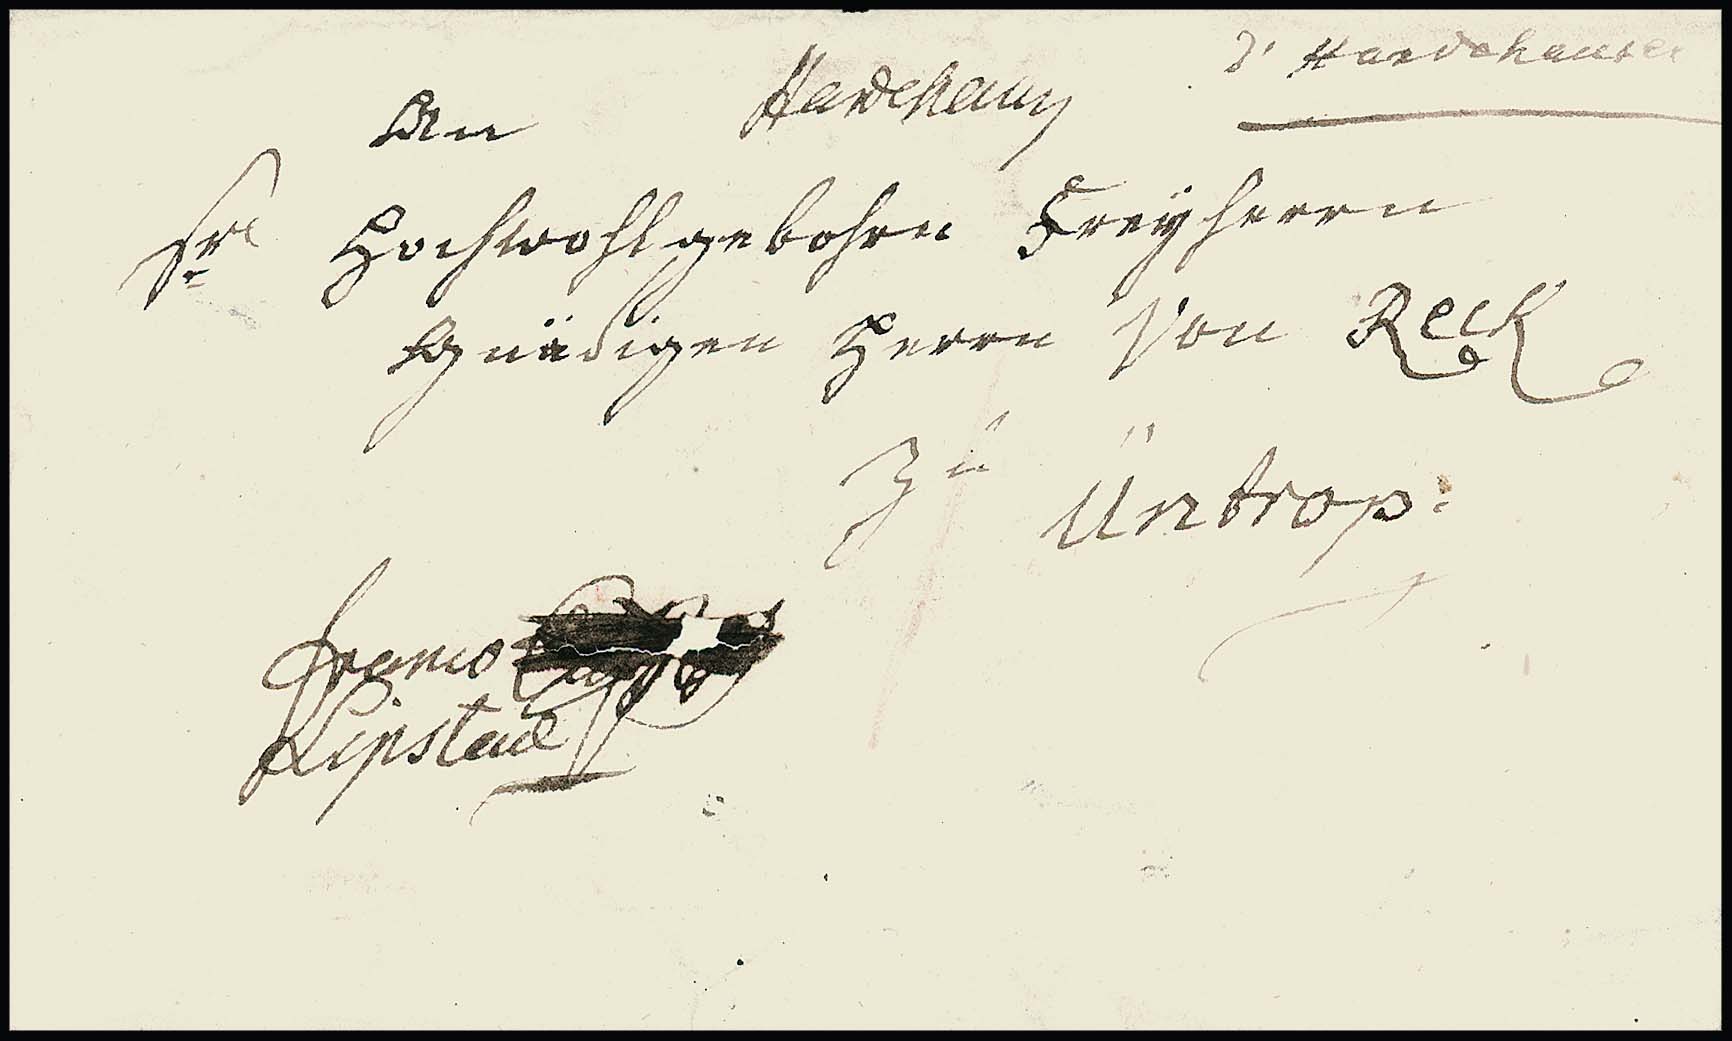 d' Hardehausen
Hardehausen
An
Sr Hochwohlgebohrn Freyherrn
Gnädigen Herrn Von Reck
Zu Üntrop:
franco
Lipstad